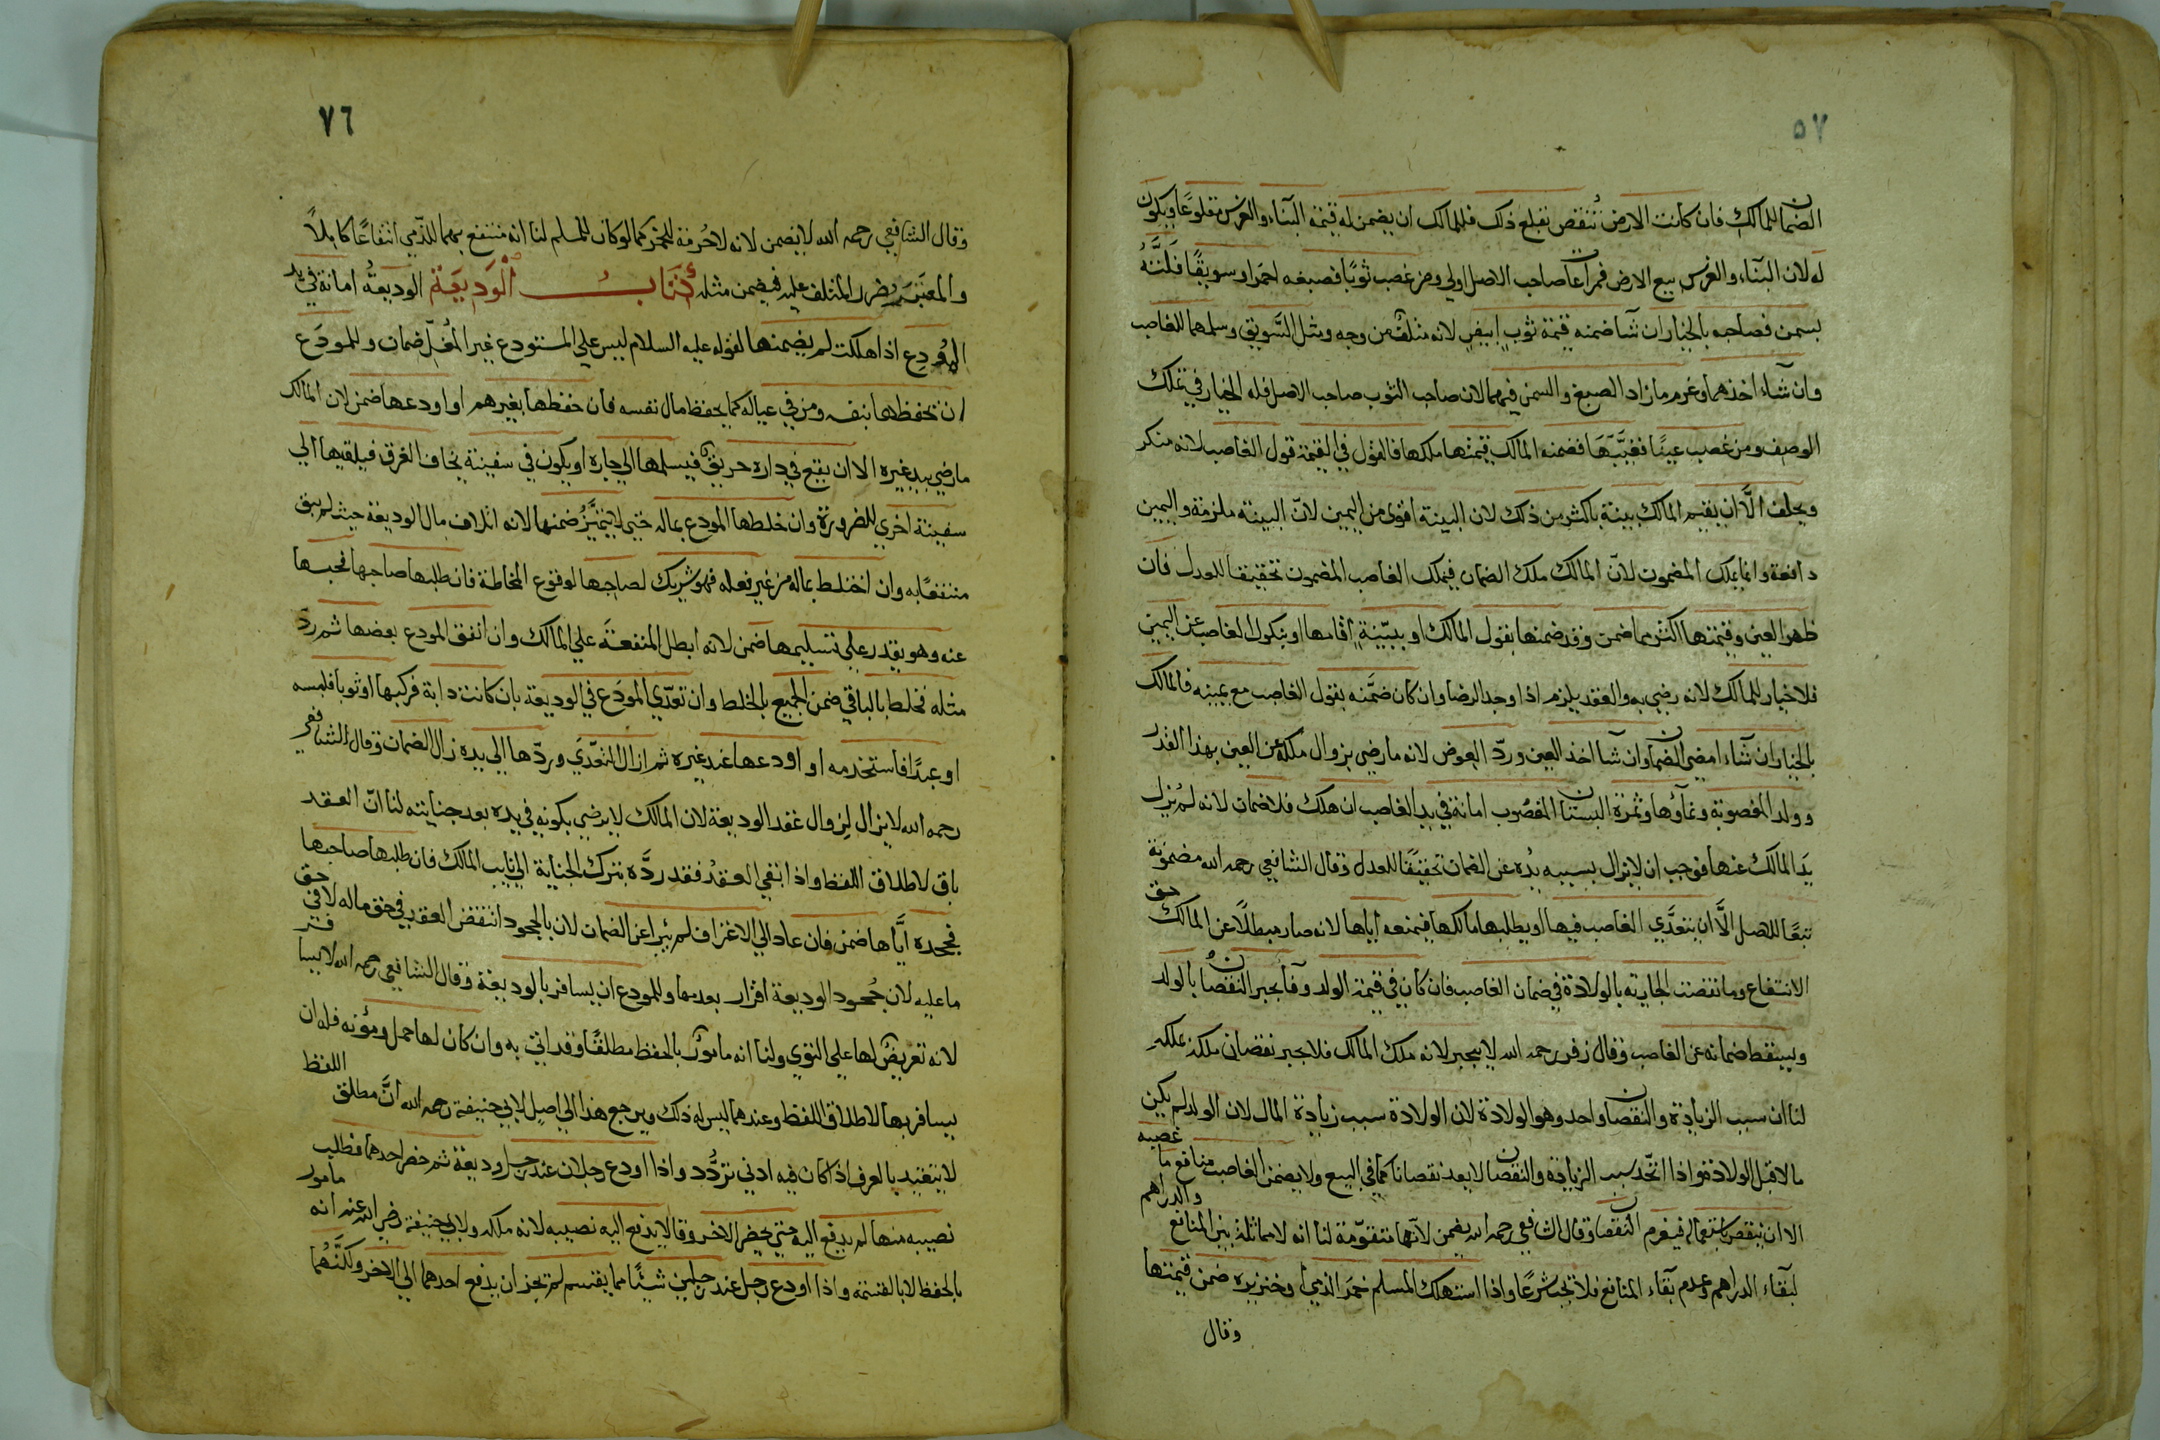 ٥٧
الضمان للمالك فان كانت الارض تنقص بقلع ذلك فللمالك ان يضمن له قيمة البناء والغرس مقلوعًا ويكون
له لان البناء والغرس بيع الارض فمراعاة صاحب الاصل اولى ومن غصب ثوبًا فصبغه احمر او سويقًا فلتّه
بسمن فصاحبه بالخيار ان شا ضمنه قيمة ثوب ابيض لانه متلف من وجه ومثل السّويق وسلمهما للغاصب
وان شاء اخذهما وغرم ما زاد الصبغ والسمن فيهما لان صاحب الثوب صاحب الاصل فله الخيار في تملك
الوصف ومن غصب عينًا فغيّبها فضمنه المالك قيمتها ملكها فالقول في القيمة قول الغاصب لانه منكر
ويحلف الّا ان يقيم المالك بينة باكثر من ذلك لان البينة اقوى من اليمين لانّ البينة ملزمة واليمين
دافعة وانما يملك المضمون لانّ المالك ملك الضمان فيملك الغاصب المضمون تحقيقا للعدل فان
ظهر العين وقيمتها اكثر مما ضمن وقد ضمنها بقول المالك او ببيّنةٍ اقامها او بنكول الغاصب عن اليمين
فلا خيار للمالك لانه رضي به والعقد يلزم اذا وجد الرضا وان كان ضمّنه بقول الغاصب مع يمينه فالمالك
بالخيار ان شاء امضى الضمان وان شا اخذ العين وردّ العوض لانه ما رضي بزوال ملكه عن العين بهذا القدر
وولد المغصوبة ونماؤها وثمرة البستان المغصوب امانة في يد الغاصب ان هلك فلا ضمان لانه لم يُزل
يدَ المالك عنها فوجب ان لا يزال بسببه يدُه عن الضمان تحقيقًا للعدل وقال الشافعي رحمه الله مضمونة
تبعًا للاصل الّا ان يتعدّي الغاصب فيها او يطلبها مالكها فيمنعه اياها لانه صار مبطلًا عن المالك حق
الانتفاع وما نقصت الجارية بالولادة في ضمان الغاصب فان كان في قيمة الولد وفآ يجبر النقصان بالولد
ويسقط ضمانه عن الغاصب وقال زفر رحمه الله لا يجبر لانه ملك المالك فلا يجبر نقصان ملكه بملكه
لنا ان سبب الزيادة والنقصان واحد وهو الولادة لان الولادة سبب زيادة المال لان الولد لم يكن
مالا قبل الولادة واذا اتّحد سبب الزيادة والنقصان لا يعد نقصانا كما في البيع ولا يضمن الغاصب منافع ما غصبه
الا ان ينقص باستعماله فيغرم النقصان وقال الشافعي رحمه الله يضمن لانها متقوّمة لنا انه لا مماثلة بين المنافع والدراهم
لبقاء الدراهم وعدم بقاء المنافع فلا تجب شرعًا واذا استهلك المسلم خمر الذمي او خنزيره ضمن قيمتها
وقال
٧٦
وقال الشافعي رحمه الله لا يضمن لانه لا حرمة للخمر كما لو كان للمسلم لنا انه منتفع بهما للذّمي انتفاعًا كاملًا
والمعتبر ضرر المتلف عليه فيضمن مثله كتاب الوديعة الوديعةُ امانة في يد
المودع اذا هلكت لم يضمنها لقوله عليه السلام ليس علي المستودع غير المُغلّ ضمان وللمودَع
ان يحفظها بنفسه ومن في عياله كما يحفظ مال نفسه فان حفظها بغيرهم او اودعها ضمن لان المالك
ما رضي بيد غيره الا ان يقع في داره حريق فيسلمها الي جاره او يكون في سفينة يخاف الغرق فيلقيها الي
سفينة اخري للضرورة وان خلطها المودع بماله حتي لا يتميّز ضمنها لانه اتلاف مال الوديعة حيث لم يبق
منتفعًا به وان اختلط بماله من غير فعله فهو شريك لصاحبها لوقوع المخالطة فان طلبها صاحبها فحبسها
عنه وهو يقدر علي تسليمها ضمن لانه ابطل المنفعة علي المالك وان انفق المودع بعضها ثم ردّ
مثله فخلط بالباقي ضمن الجميع بالخلط وان تعدّي المودَع في الوديعة بان كانت دابة فركبها او ثوبا فلبسه
او عبدًا فاستخدمه او اودعها عند غيره ثم ازال التعدّي وردّها الي يده زال الضمان وقال الشافعي
رحمه الله لا يزال لزوال عقد الوديعة لان المالك لا يرضي بكونه في يده بعد جنايته لنا انّ العقد
باق لاطلاق اللفظ واذا بقي العقد فقد ردّه بترك الجناية الي نايب المالك فان طلبها صاحبها
فجحده ايّاها ضمن فان عاد الي الاعتراف لم يبرا عن الضمان لان بالجحود انتقض العقد في حق ماله لا في حق
ما عليه لان جُحود الوديعة اقرار بعدمها وللمودع ان يسافر بالوديعة وقال الشافعي رحمه الله لا يسافر
لانه تعريض لها علي التوي ولنا انه مامور بالحفظ مطلقًا وقد اتي به وان كان لها حمل ومؤنة فله ان
يسافر بها لاطلاق اللفظ وعندهما ليس له ذلك ويرجع هذا الي اصلٍ لابي حنيفة رحمه الله انّ مطلق اللفظ
لا يتقيد بالعرف اذا كان فيه ادني تردّد واذا اودع رجلان عند رجل وديعة ثم حضر احدهما فطلب
نصيبه منها لم يدفع اليه حتي يحضر الاخر وقالا يدفع اليه نصيبه لانه ملكه ولابي حنيفة رضي الله عنه انه مامور
بالحفظ لا بالقسمة واذا اودع رجل عند رجلين شيئًا مما يقسم لم يجز ان يدفع احدهما الي الاخر ولكنّهما